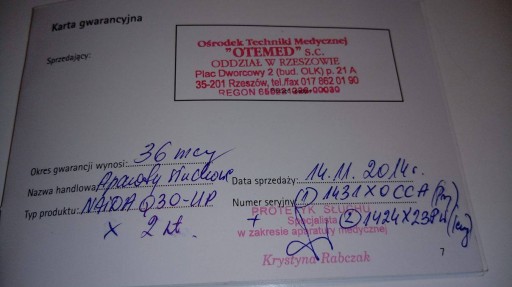 Karta gwarancyjna
Sprzedający:
Ośrodek Techniki Medycznej
"OTEMED" s.c.
ODDZIAŁ W RZESZOWIE
Plac Dworcowy 2 (bud. OLK) p. 21 A
35-201 Rzeszów, tel./fax 017 862 01 90
REGON
Okres gwarancji wynosi: 36 mcy
Nazwa handlowa: Aparaty słuchowe
Data sprzedaży: 14.11.2014 r.
Typ produktu: NAIDA Q30-UP
Numer seryjny: (1) 1431X0CCA
x 2 szt.
+ (2)
PROTETYK SŁUCHU
Specjalista
w zakresie aparatury medycznej
Krystyna Rabczak
7